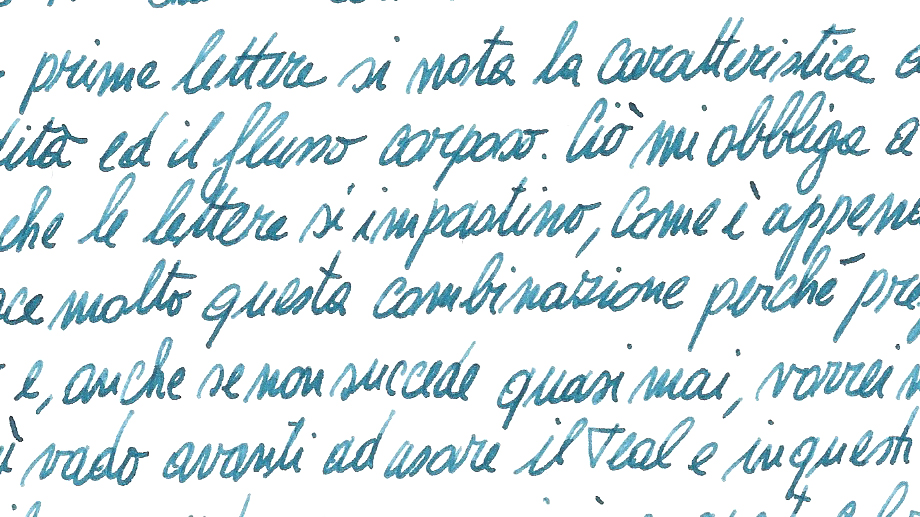 prime lettere si nota la caratteristica
dità ed il flusso corposo. Ciò mi obbliga a
che le lettere si impastino, come è appena
molto questa combinazione perché
e, anche se non succede quasi mai, vorrei
vado avanti ad usare il Teal e in questi